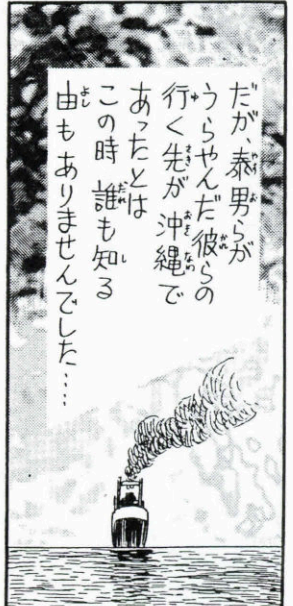 だが、泰男らが
うらやんだ彼らの
行く先が沖縄で
あったとは
この時 誰も知る
由もありませんでした‥‥